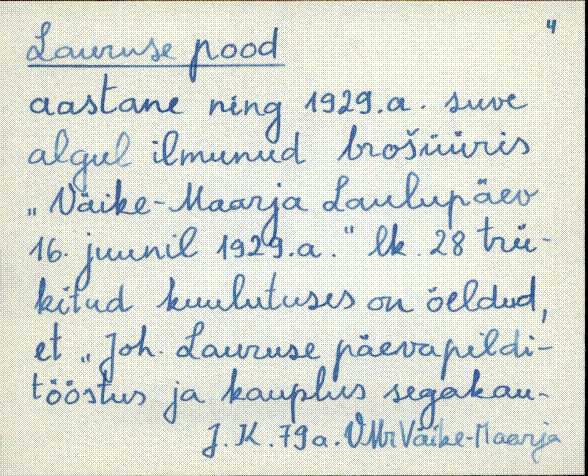 4
Lauruse pood
aastane ning 1929.a. suve
algul ilmunud brošüüris
„Väike-Maarja Laulupäev
16. juunil 1929.a." lk. 28 trü-
kitud kuulutuses on öeldud,
et „Joh. Lauruse päevapildi-
tööstus ja kauplus segakau-
J.K. 79a. VMr Väike-Maarja